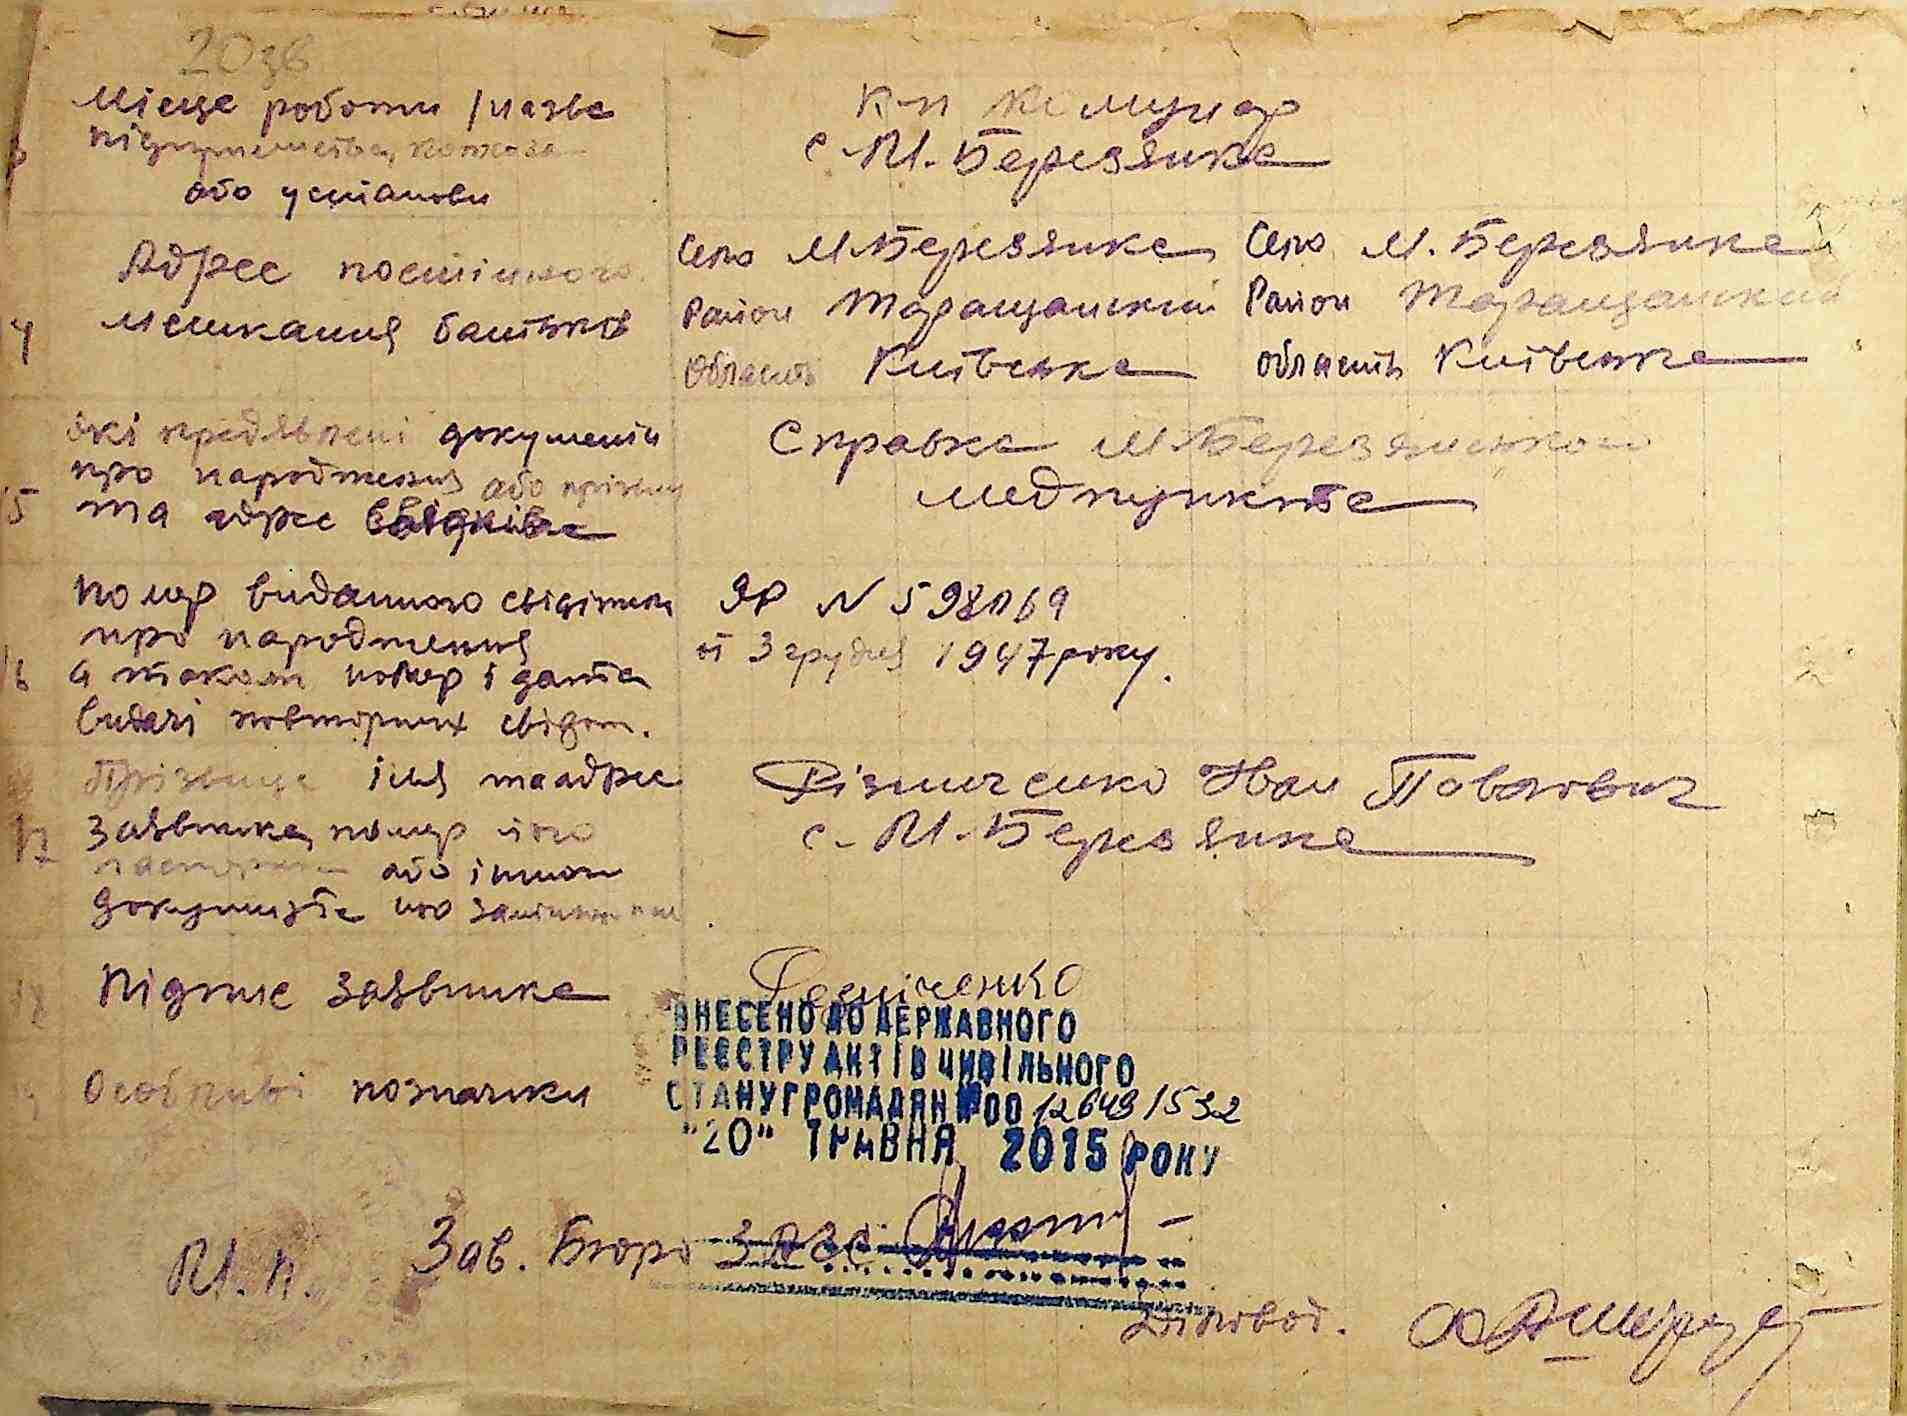 Місце роботи /назва
підприємства, колгоспа
або установи
к-п Комунар
с. М. Березянка
Адрес постійного
мешкання батьків
Село М. Березянка
Район Таращанский
Область Київська
Село М. Березянка
Район Таращанский
область Київська
які предявлені документи
про народження або прізвищ
та адрес свідків
Справка М. Березянського
медпункта
Номер виданного свідотства
про народження
а також номер і дата
видачі повторних свідот.
ЯР N 598169
от 3 грудня 1947 року.
Прізвище імя та адрес
Заявника, номер його
паспорта або іншого
документа
Різниченко Іван Павлович
с. М. Березянка
Підпис заявника
Різніченко
Особливі позначки
ВНЕСЕНО ДО ДЕРЖАВНОГО
РЕЄСТРУ АКТІВ ЦИВІЛЬНОГО
СТАНУ ГРОМАДЯН № 00 12649/532
"20" ТРАВНЯ 2015 РОКУ
М. П. Зав. Бюро ЗАГС
Діловод.